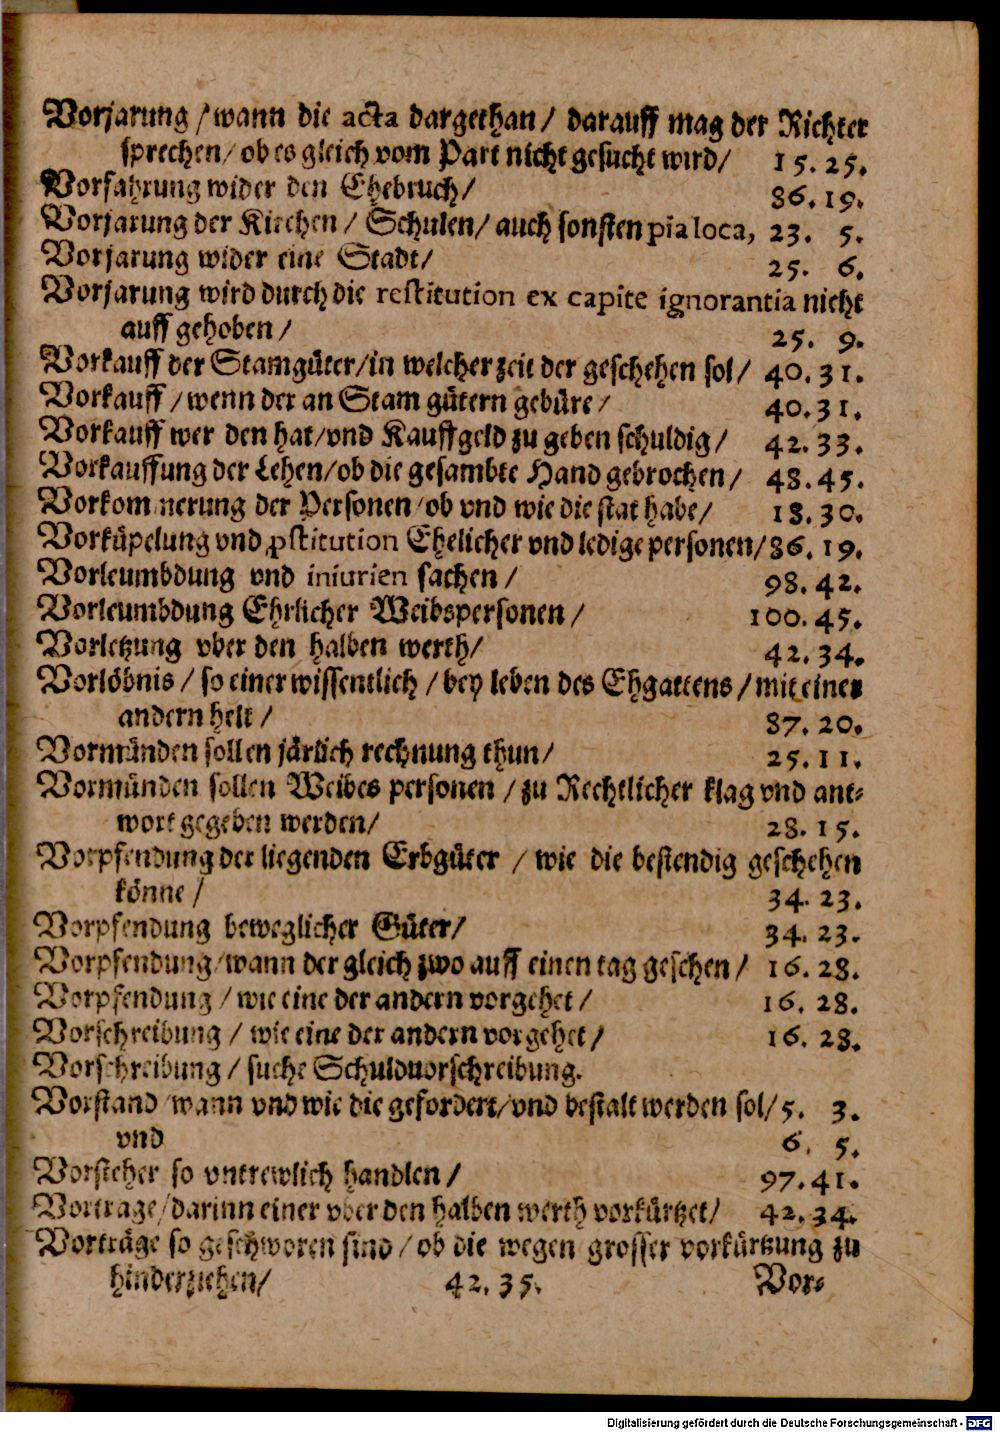 Vorjarung / wann die acta dargethan / darauff mag der Richter
sprechen / ob es gleich vom Part nicht gesucht wird / 15. 25.
Vorfahrung wider den Ehebruch / 86. 19.
Vorjarung der Kirchen / Schulen / auch sonsten pia loca, 23. 5.
Vorjarung wider eine Stadt / 25. 6.
Vorjarung wird durch die restitution ex capite ignorantia nicht
auff gehoben / 25. 9.
Vorkauff der Stamgüter / in welcher zeit der geschehen sol / 40. 31.
Vorkauff / wenn der an Stam gütern gebüre / 40. 31.
Vorkauff wer den hat / vnd Kauffgeld zu geben schuldig / 42. 33.
Vorkauffung der Lehen / ob die gesambte Hand gebrochen / 48. 45.
Vorkommerung der Personen / ob vnd wie die stat habe / 18. 30.
Vorküpelung vnd ꝓstitution Ehelicher vnd ledige personen / 86. 19.
Vorleumbdung vnd iniurien sachen / 98. 42.
Vorleumbdung Ehrlicher Weibspersonen / 100. 45.
Vorletzung vber den halben werth / 42. 34.
Vorlöbnis / so einer wissentlich / bey leben des Ehgattens / mit einer
andern helt / 87. 20.
Vormünden sollen järlich rechnung thun / 25. 11.
Vormünden sollen Weibes personen / zu Rechtlicher klag vnd ant⸗
wort gegeben werden / 28. 15.
Vorpfendung der liegenden Erbgüter / wie die bestendig geschehen
könne / 34. 23.
Vorpfendung beweglicher Güter / 34. 23.
Vorpfendung / wann der gleich zwo auff einen tag geschen / 16. 28.
Vorpfendung / wie eine der andern vorgehet / 16. 28.
Vorschreibung / wie eine der andern vorgehet / 16. 28.
Vorschreibung / suche Schulduorschreibung.
Vorstand / wann vnd wie die gefordert / vnd bestalt werden sol / 5. 3.
vnd 6. 5.
Vorsteher so vntrewlich handlen / 97. 41.
Vortrage / darinn einer vber den halben werth vorkürtzet / 42. 34.
Vorträge so geschworen sind / ob die wegen grosser vorkürtzung zu
hinderziehen / 42. 35. Vor⸗
Digitalisierung gefördert durch die Deutsche Forschungsgemeinschaft - DFG